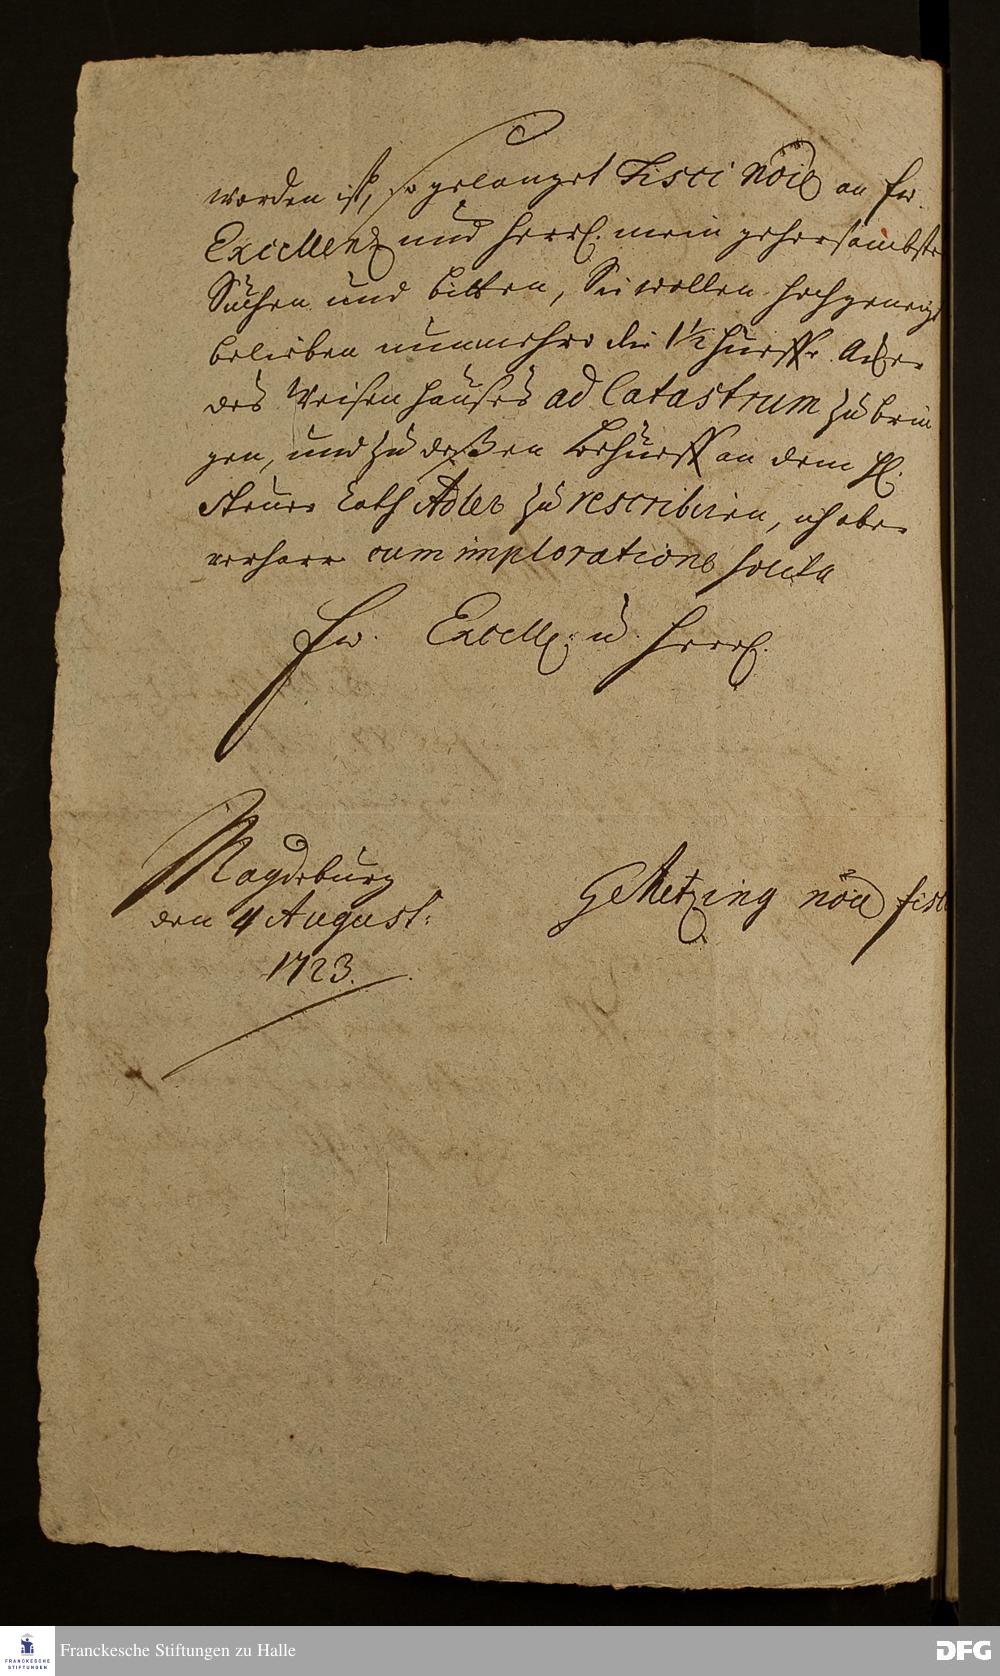 worden ist, so gelanget Fisci nõie an Ew.
Excellenz und Herrl. mein gehorsambste
Suchen und bitten, Sie wollen hochgeneigt
belieben nunmehro die 1½ Hueffe Acker
des Weisenhauses ad Catastrum zu brin
gen, und zu deßen Behueff an dem H.
Steuer Rath Adler zu rescribiren, ich aber
verharre cum imploratione solita
Ew. Excell: u. Herrl.
Magdeburg
den 4 August:
1723.
GeMetzing nõie fisci
Franckesche Stiftungen zu Halle
FRANCKESCHE
STIFTUNGEN
DFG